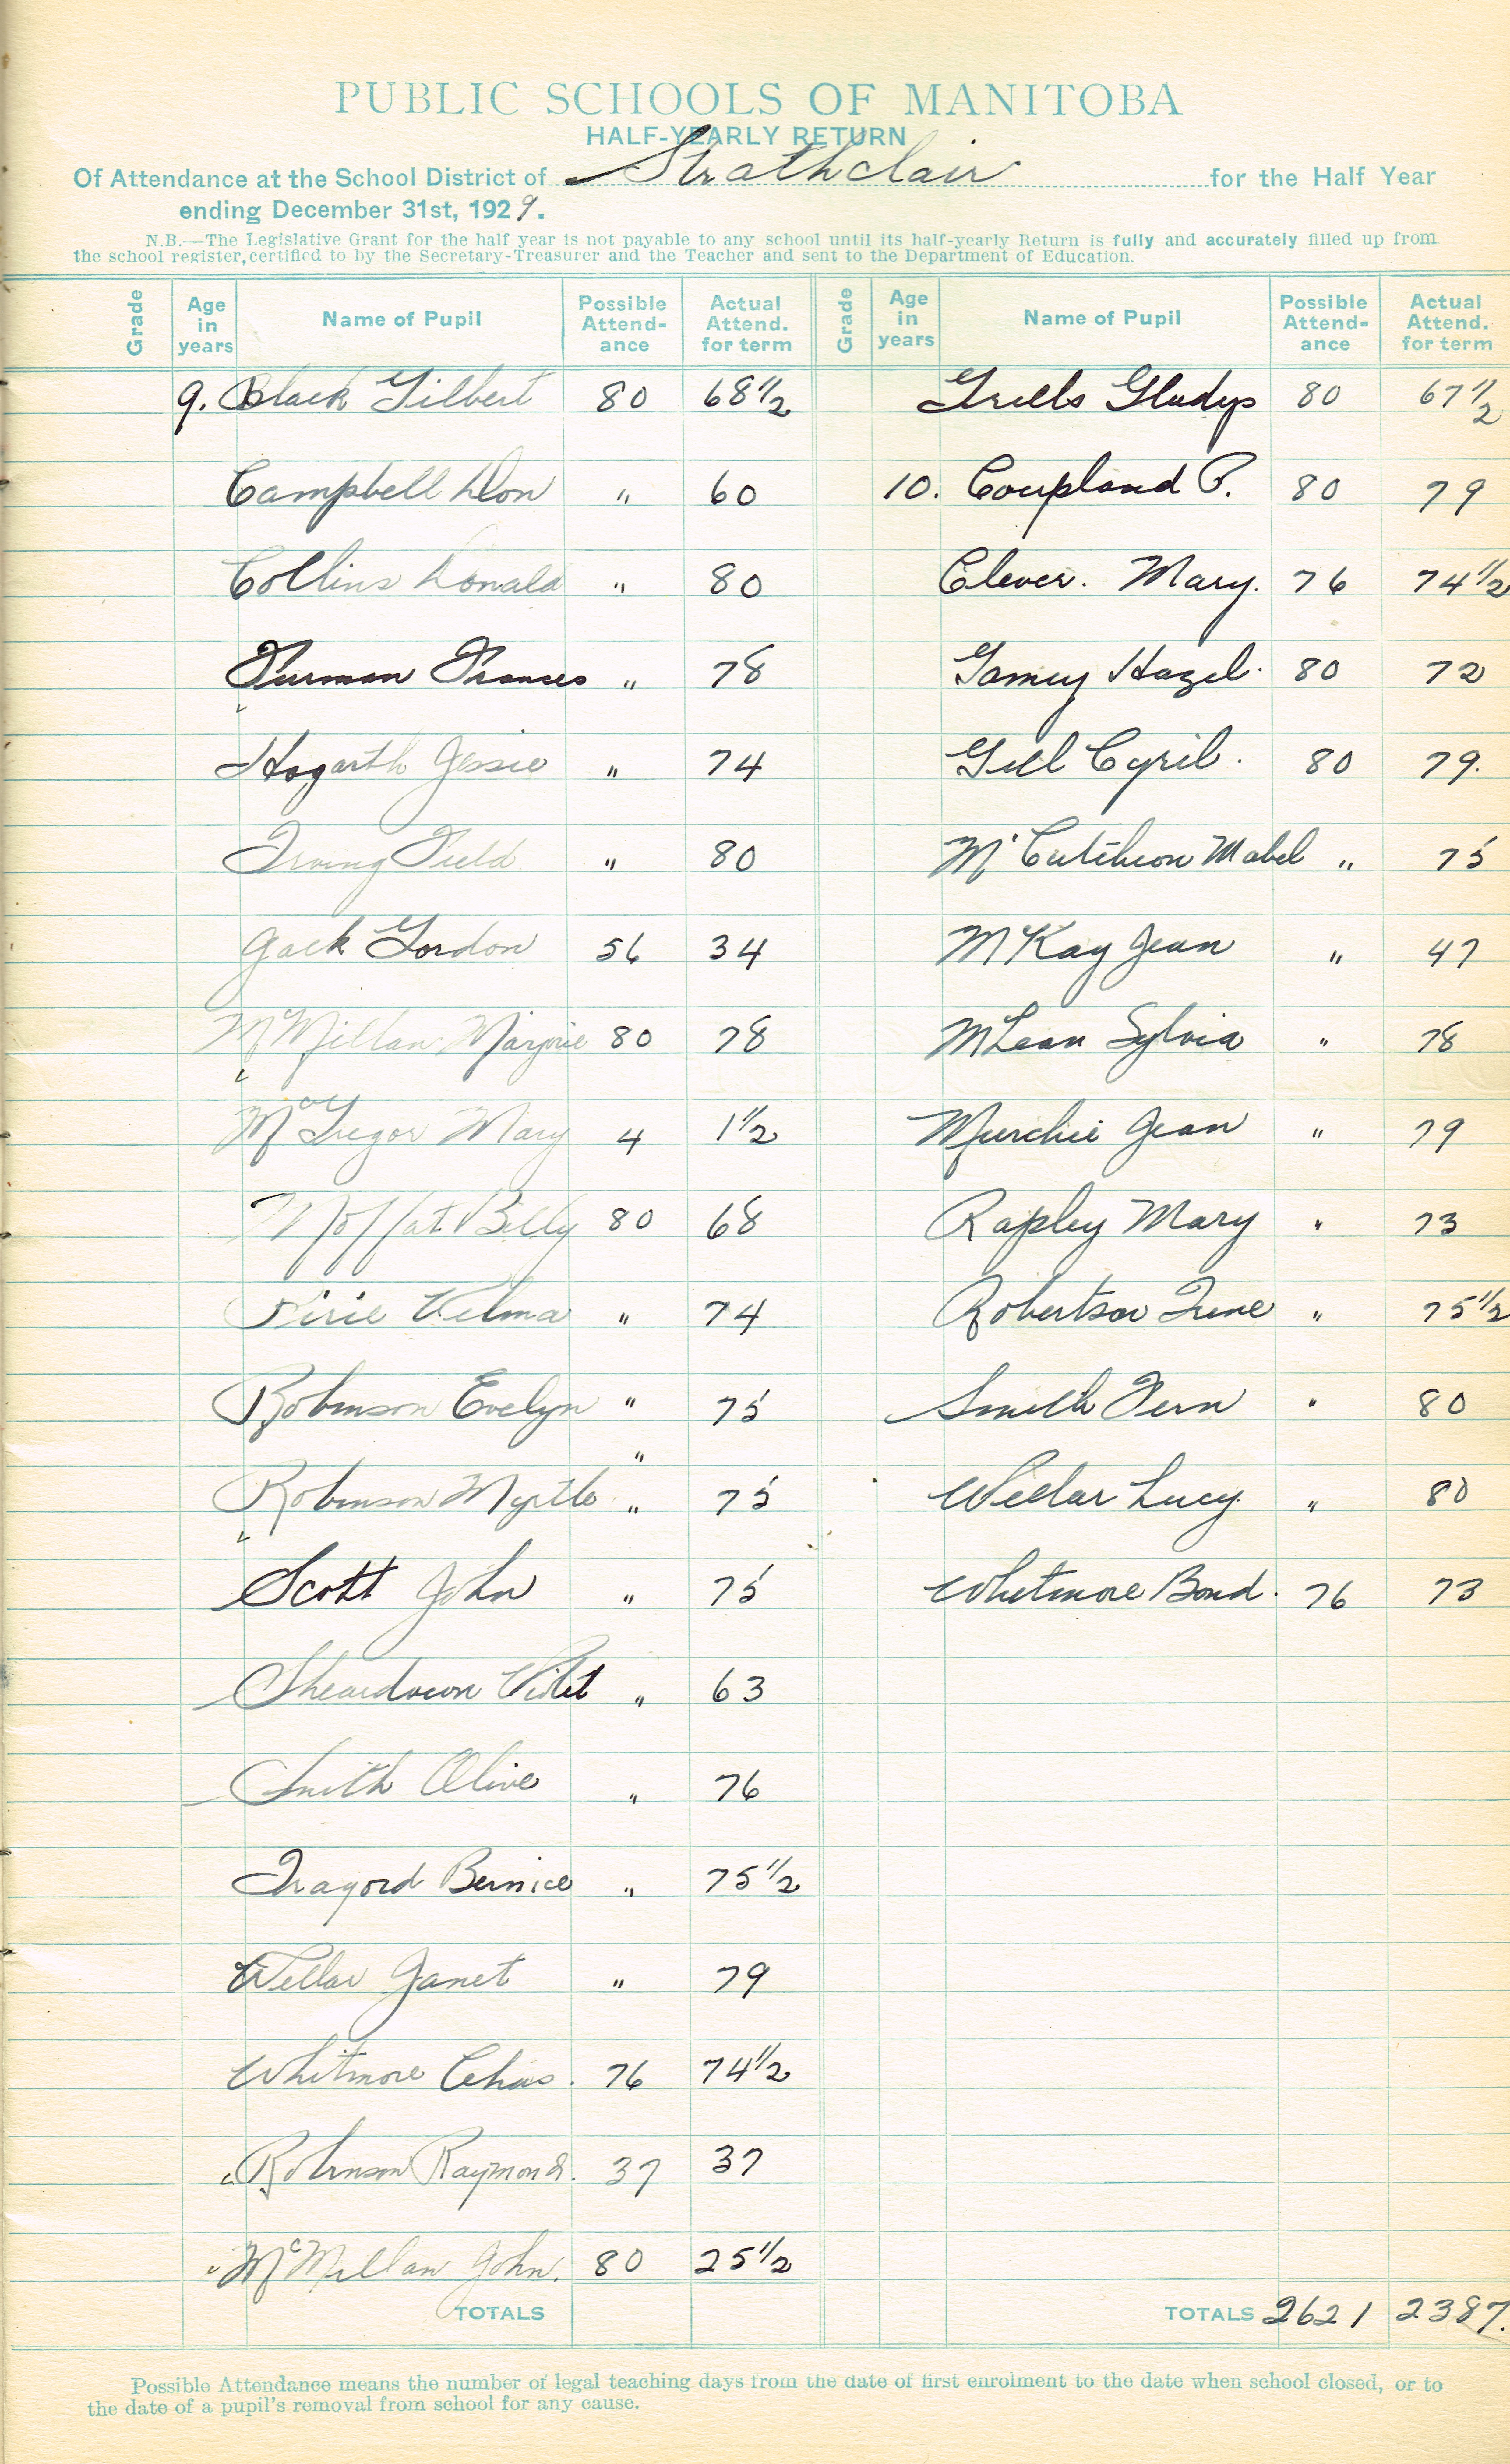 PUBLIC SCHOOLS OF MANITOBA
HALF-YEARLY RETURN
Of Attendance at the School District of Strathclair for the Half Year
ending December 31st, 1929.
N.B.—The Legislative Grant for the half year is not payable to any school until its half-yearly Return is fully and accurately filled up from
the school register, certified to by the Secretary-Treasurer and the Teacher and sent to the Department of Education.
Grade Age in years Name of Pupil Possible Attend-ance Actual Attend. for term
9. Black Gilbert 80 68 1/2
Campbell Don " 60
Collins Donald " 80
Furman Frances " 78
Hogarth Jessie " 74
Irving Field " 80
Jack Gordon 56 34
McMillan Marjorie 80 78
McGregor Mary 4 1 1/2
Moffat Billy 80 68
Pirie Velma " 74
Robinson Evelyn " 75
"
Robinson Myrtle " 75
Scott John " 75
Sheardown Violet " 63
Smith Olive " 76
Bernice " 75 1/2
Wellar Janet " 79
Whitmore Chas. 76 74 1/2
Robinson Raymond. 37 37
McMillan John. 80 25 1/2
TOTALS
Grade Age in years Name of Pupil Possible Attend-ance Actual Attend. for term
Grells Gladys 80 67 1/2
10. Coupland P. 80 79
Clever. Mary. 76 74 1/2
Gamey Hazel. 80 72
Gill Cyril. 80 79.
McCutcheon Mabel " 75
McKay Jean " 47
McLean Sylvia " 78
Murchie Jean " 79
Rapley Mary " 73
Robertson Irene " 75 1/2
Smith Fern " 80
Wellar Lucy. " 80
Whitmore Bond. 76 73
TOTALS 2621 2387.
Possible Attendance means the number of legal teaching days from the date of first enrolment to the date when school closed, or to
the date of a pupil's removal from school for any cause.